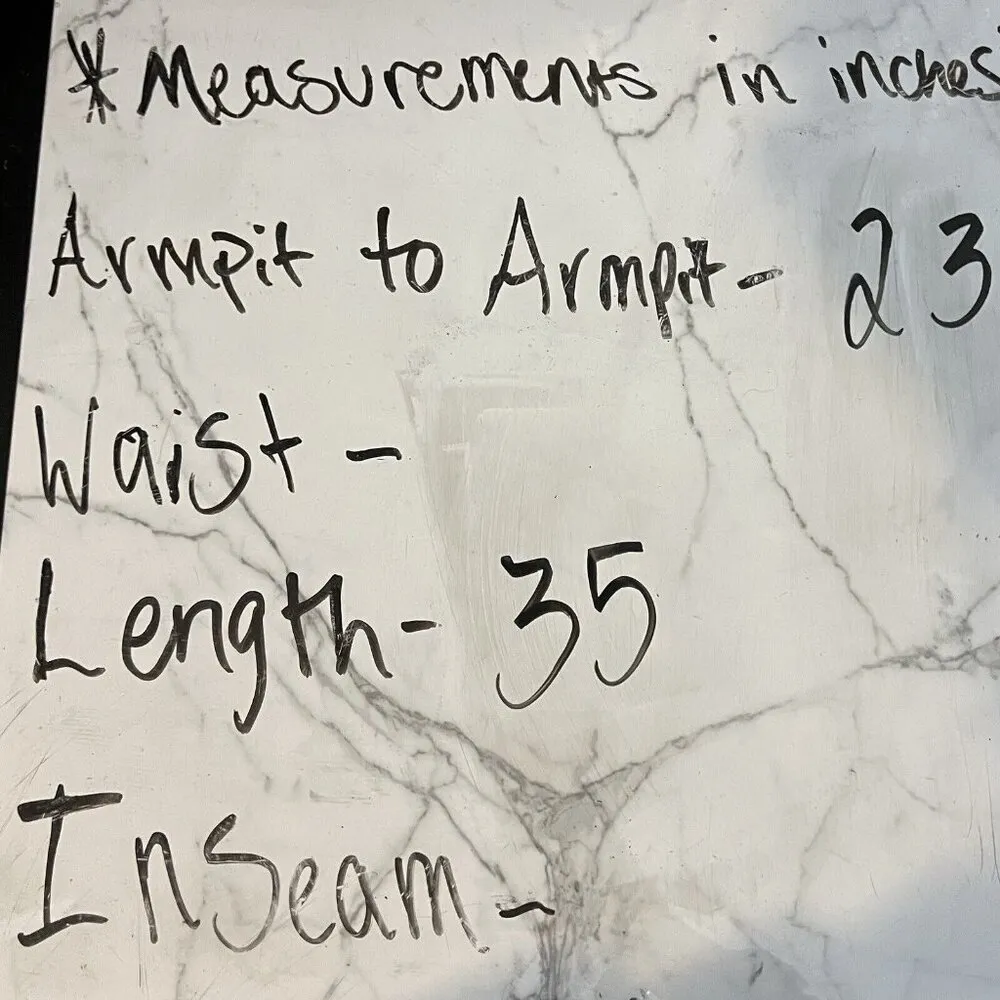 * Measurements in inches
Armpit to Armpit - 23
Waist -
Length - 35
Inseam -